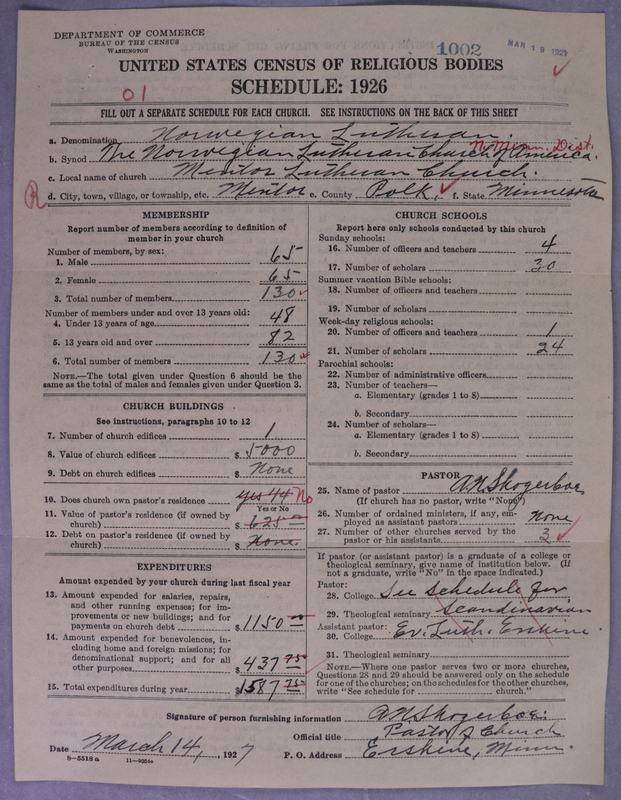 DEPARTMENT OF COMMERCE
BUREAU OF THE CENSUS
WASHINGTON
1002
MAR 19 1927
UNITED STATES CENSUS OF RELIGIOUS BODIES
01
SCHEDULE: 1926
FILL OUT A SEPARATE SCHEDULE FOR EACH CHURCH. SEE INSTRUCTIONS ON THE BACK OF THIS SHEET
a. Denomination Norwegian Lutheran.
N. Minn. Dist.
b. Synod The Norwegian Lutheran Church of America.
c. Local name of church Mentor Lutheran Church.
R d. City, town, village, or township, etc. Mentor e. County Polk, f. State Minnesota
MEMBERSHIP
Report number of members according to definition of
member in your church
Number of members, by sex:
1. Male 65
2. Female 65
3. Total number of members 130
Number of members under and over 13 years old:
4. Under 13 years of age 48
5. 13 years old and over 82
6. Total number of members 130
NOTE.—The total given under Question 6 should be the
same as the total of males and females given under Question 3.
CHURCH BUILDINGS
See instructions, paragraphs 10 to 12
7. Number of church edifices 1
8. Value of church edifices $ 5000
9. Debt on church edifices $ None
10. Does church own pastor's residence yes 44 No
Yes or No
11. Value of pastor's residence (if owned by
church) $ 625
12. Debt on pastor's residence (if owned by
church) $ None
EXPENDITURES
Amount expended by your church during last fiscal year
13. Amount expended for salaries, repairs,
and other running expenses; for im-
provements or new buildings; and for
payments on church debt $ 1150
14. Amount expended for benevolences, in-
cluding home and foreign missions; for
denominational support; and for all
other purposes $ 437 75
15. Total expenditures during year $ 1587 75
CHURCH SCHOOLS
Report here only schools conducted by this church
Sunday schools:
16. Number of officers and teachers 4
17. Number of scholars 30
Summer vacation Bible schools:
18. Number of officers and teachers
19. Number of scholars
Week-day religious schools:
20. Number of officers and teachers 1
21. Number of scholars 24
Parochial schools:
22. Number of administrative officers
23. Number of teachers—
a. Elementary (grades 1 to 8)
b. Secondary
24. Number of scholars—
a. Elementary (grades 1 to 8)
b. Secondary
PASTOR
25. Name of pastor A N Skogerboe
(If church has no pastor, write "None")
26. Number of ordained ministers, if any, em-
ployed as assistant pastors None
27. Number of other churches served by the
pastor or his assistants 3
If pastor (or assistant pastor) is a graduate of a college or
theological seminary, give name of institution below. (If
not a graduate, write "No" in the space indicated.)
Pastor:
28. College See schedule for
29. Theological seminary Scandinavian
Assistant pastor:
30. College Ev. Luth. Erskine.
31. Theological seminary
NOTE.—Where one pastor serves two or more churches,
Questions 28 and 29 should be answered only on the schedule
for one of the churches; on the schedules for the other churches,
write "See schedule for church."
Signature of person furnishing information A N Skogerboe.
Official title Pastor of Church
Date March 14, 1927
P. O. Address Erskine, Minn.
8—5518 a 11—9264